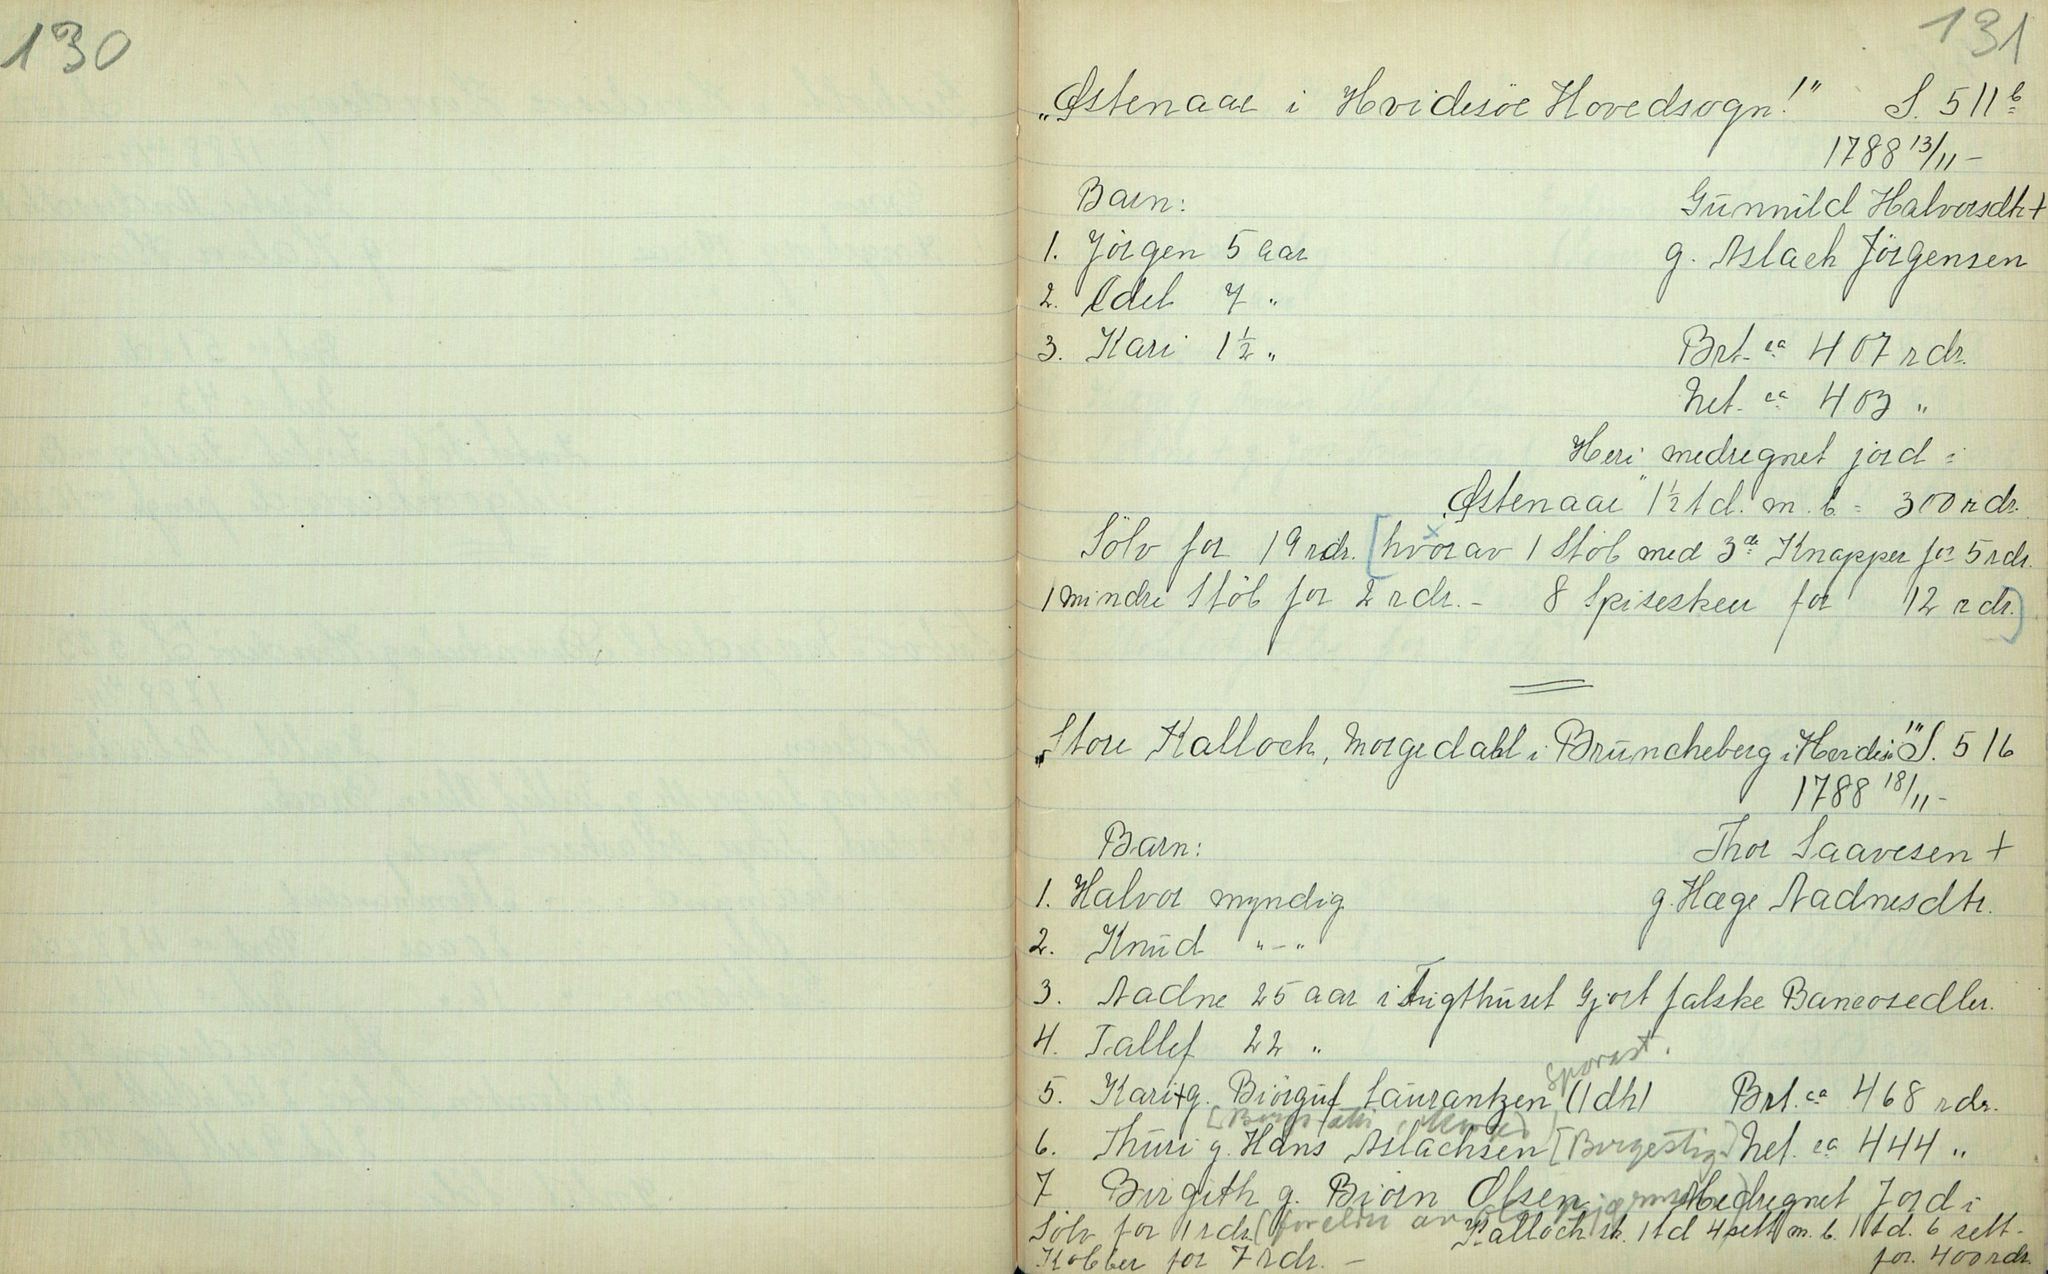 130
131
„Østenaae i Hvidesöe Hovedsogn!" S. 511 b
1788 13/11 –
Barn: Gunnild Halvorsdtr +
1. Jörgen 5 aar g. Aslach Jörgensen
2. Edel 7 "
3. Kari 1 ½ " Brt. ca 407 rdr.
Net. ca 403 "
Heri medregnet jord i
„Østenaae" 1½ td. m. b = 300 rdr.
Sölv for 19 rdr. [hvorav 1 Stöb med 3de Knapper for 5 rdr.
1 mindre Stöb for 2 rdr. – 8 Spiseskeer for 12 rdr.]
„Store Kalloch, Morgedahl i Bruncheberg i Hvidesö!" S. 516
1788 18/11 –
Barn: Thor Saavesen +
1. Halvor myndig g. Hæge Aadnesdtr.
2. Knud "–"
3. Aadne 25 aar i Tugthuset Gjort falske Bancosedler.
4. Tallef 22 "
Sporast.
5. Kari + g. Biörguf Saurantzen (1 dtr) Brt. ca 468 rdr.
6. Thuri g. Hans Aslachsen [Borgestig] Net. ca 444 "
7 Birgith g. Biörn Olsen Medregnet Jord i
Sölv for 1 rdr. [foreldre av Kalloch st. 1 td 4 sett m. b. 1 td. 6 sett –
Kobber for 7 rdr. – for. 400 rdr.